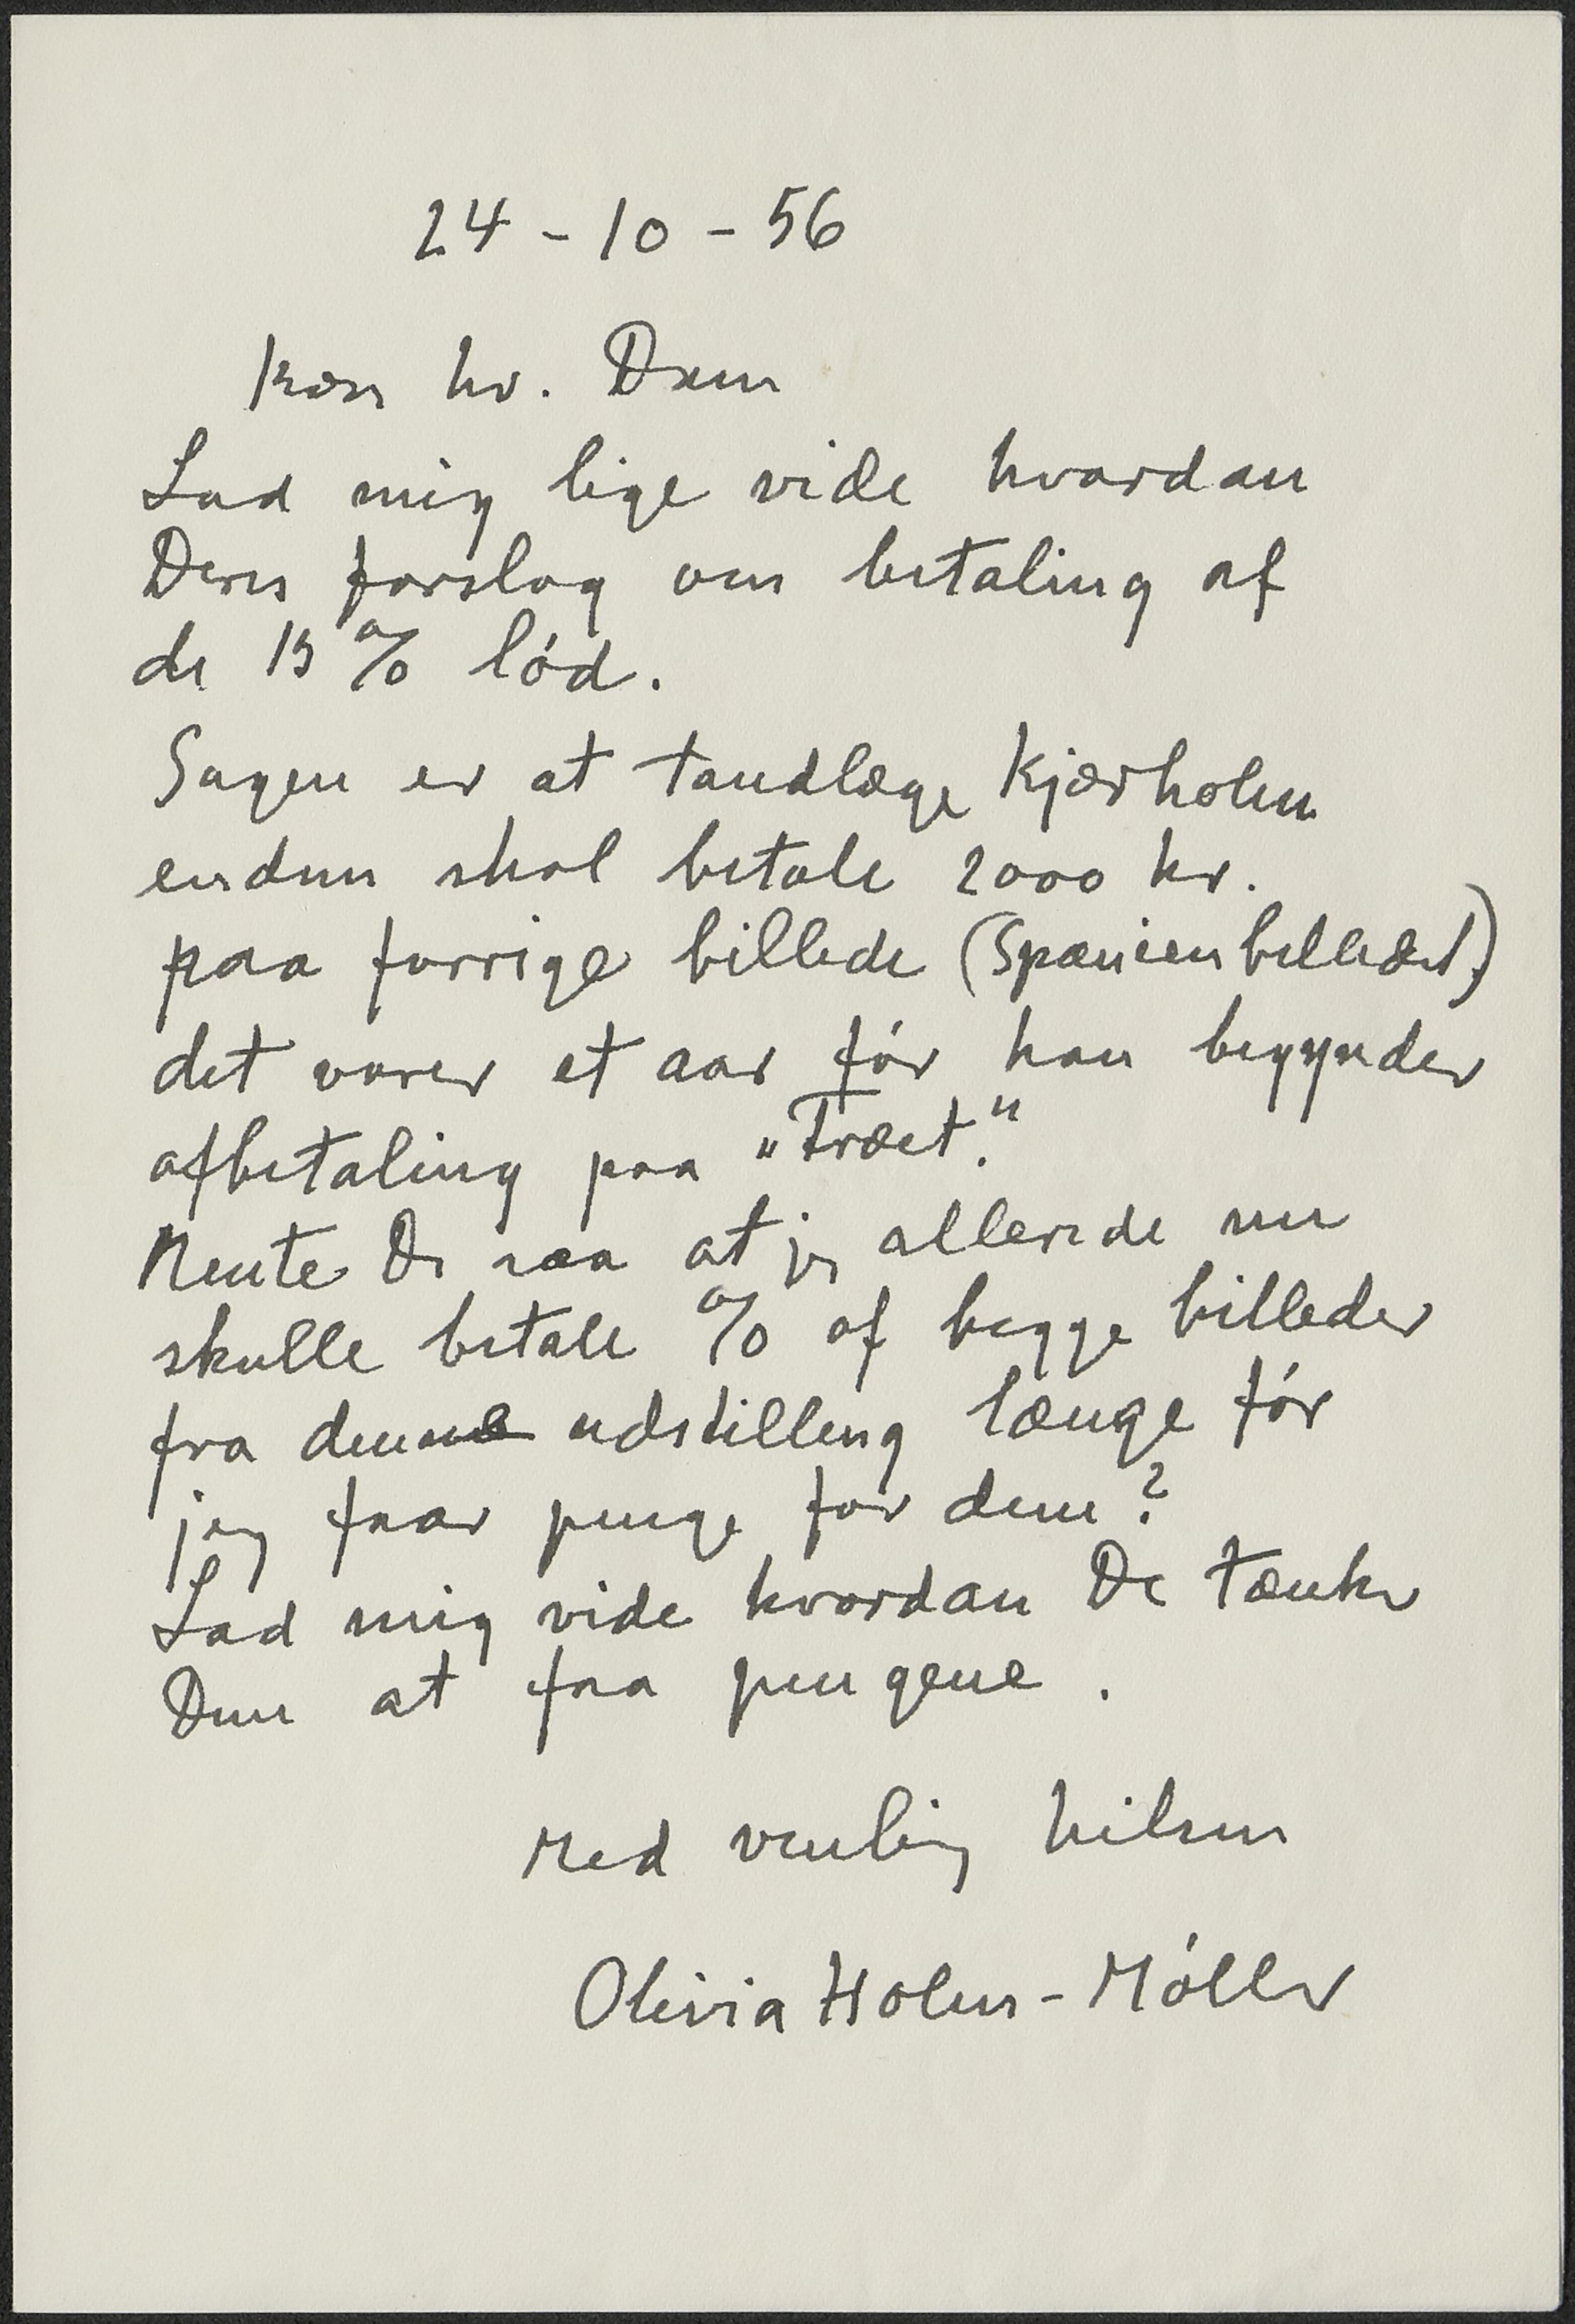 24-10-56
Kære hr. Dam
Lad mig lige vide hvordan
Deres forslag om betaling af
de 15% lód.
Sagen er at tandlæge Kjærholm
endnu skal betale 2000 kr.
paa forrige billede (Spanienbilledet)
det varer et aar fór han begynder
afbetaling paa "Træet".
Mente De saa at jeg allerede nu
skulle betale % af begge billeder
fra denne udstilling længe fór
jeg faar penge for dem?
Lad mig vide hvordan De tænker
Dem at faa pengene.
Med venlig hilsen
Olivia Holm-Móller